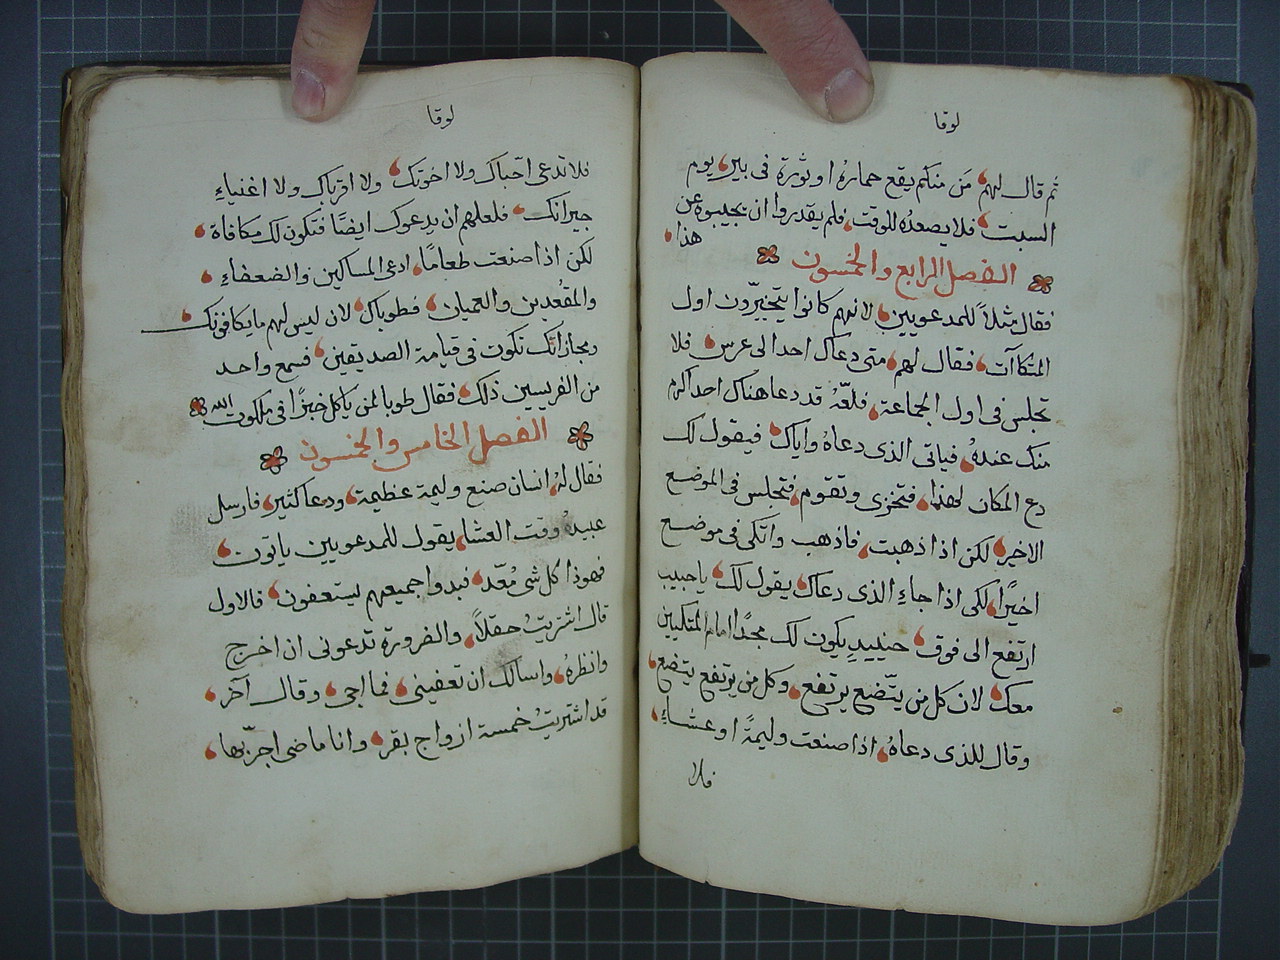 لوقا
ثم قال لهم مَن منكم يقع حماره او ثورة فى بير يوم
السبت فلا يصعدُه للوقت فلم يقدروا ان يجيبوه عن
هذا
الفصل الرابع والخمسون
فقال مثلاً للمدعويين لانهم كانوا يتخيّرون اول
المتكاآت فقال لهم متى دعاك احد الى عرس فلا
تجلس فى اول الجماعة فلعلّهُ قد دعا هناك احد اكرم
منك عندهُ فياتى الذى دعاهُ واياك فيقول لك
دع المكان لهذا فتخزى وتقوم فتجلس فى الموضع
الاخير لكن اذا ذهبت فاذهب واتكى فى موضع
اخيرًا لكى اذا جاءِ الذى دعاك يقول لك يا حبيب
ارتفع الى فوق حينيدٍ يكون لك مجدًا امام المتكيين
معك لان كل من يتّضع يرتفع وكل من يرتفع يتضع
وقال للذى دعاهُ اذا صنعت وليمةً او عشاءِ
فلا
لوقا
فلا تدعى احباك ولا اخوتك ولا اقرباك ولا اغنياءِ
جيرانك فلعلهم ان يدعوك ايضًا فتكون لك مكافاة
لكن اذا صنعت طعامًا ادعى المساكين والضعفاءِ
والمقُعدين والعميان فطوباك لان ليس لهم ما يكافونك
ومجازاتك تكون فى قيامة الصديقين فسمع واحد
من الفريسين ذلك فقال طوبا لمن ياكل خبزًا فى ملكوت الله
الفصل الخامس والخمسون
فقال لهُ انسان صنع وليمة عظيمة ودعا كثير فارسل
عبيدهُ وقت العشا يقول للمدعويين ياتون
فهوذا كل شى مُعّد فبدوا جميعهم ليستعفون فالاول
قال اشتريتُ حقلاً والضرورة تدعونى ان اخرج
وانظرهُ واسالك ان تعفينى فما اجى وقال آخر
قد اشتريتُ خمسة ازواج بقر وانا ماضى اجرّبها